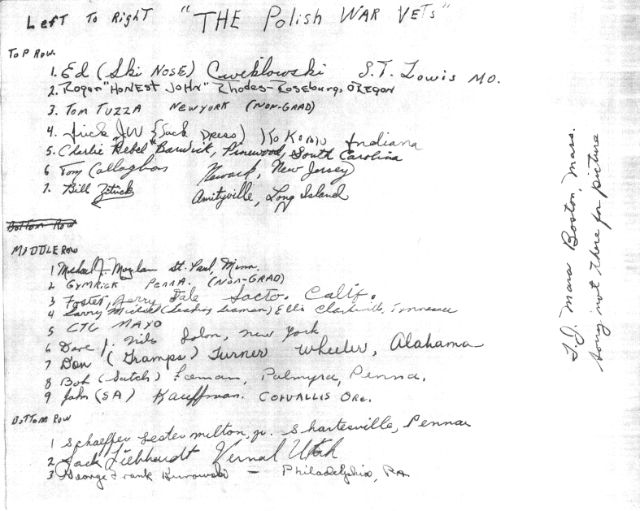 Left To Right "THE Polish WAR VETS"
TOP ROW
1. Ed (Ski NOSE) Cweklowski S.T. Lowis MO.
2. Roger "HONEST JOHN" Rhodes - Roseburg, OREGON
3. TOM TUZZA NEW YORK (NON-GRAD)
4. J.W. (Sack Dress) KOKOMO Indiana
5. Charlie "Rebel" Barwick, Pinewood, South Carolina
6 Tom Callaghan Newark, New Jersey
7. Bill Amityville, Long Island
Bottom Row
MIDDLE ROW
1 Michael J. Moylan St. Paul, Minn.
2 GYMRICK PENNA. (NON-GRAD)
3 Foster, Gerry Dale Sacto. Calif.
4 Larry (Seaman) Ellis Clarksville, Tennessee
5 CTC MAYO
6 Dave J. Nils Solon, new york
7 Don (Gramps) Turner Wheeler, Alabama
8 Bob (Satch) Palmyra, Penna.
9 John (SA) Kauffman. CORVALLIS ORE.
BOTTOM ROW
1 Schaeffer Lester Milton, jr. Shartlesville, Penna
2 Jack Liebhardt Vernal Utah
3 George Frank Kurowski - PHILADELPHIA, PA
T.J. Mara Boston, Mass.
Sorry not there for picture